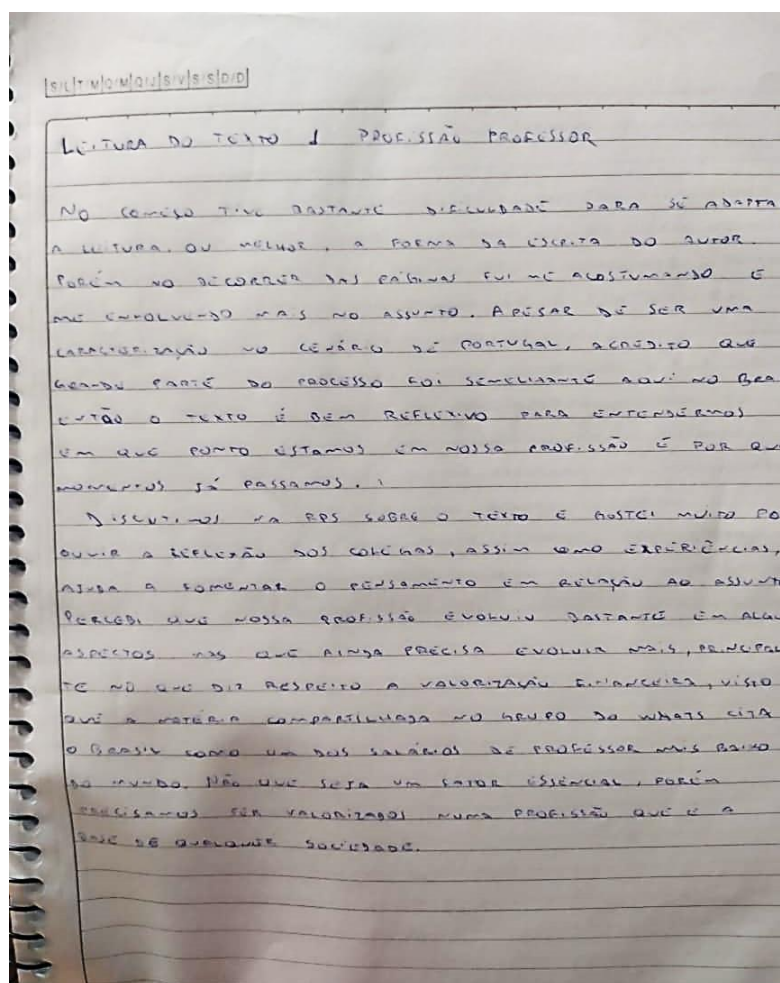 S/L|T/M|Q/M|Q/J|S/V|S/S|D/D
LEITURA DO TEXTO 1 PROFISSÃO PROFESSOR
NO COMEÇO TIVE BASTANTE DIFICULDADE PARA SE ADAPTA
A LEITURA. OU MELHOR, A FORMA DA ESCRITA DO AUTOR.
PORÉM NO DECORRER DAS PÁGINAS FUI ME ACOSTUMANDO E
ME ENVOLVENDO MAIS NO ASSUNTO. APESAR DE SER UMA
CARACTERIZAÇÃO NO CENÁRIO DE PORTUGAL, ACREDITO QUE
GRANDE PARTE DO PROCESSO FOI SEMELHANTE AQUI NO BRA
ENTÃO O TEXTO É BEM REFLEXIVO PARA ENTENDERMOS
EM QUE PONTO ESTAMOS EM NOSSA PROFISSÃO E POR QU
MOMENTOS JÁ PASSAMOS.
DISCUTIMOS NA RPS SOBRE O TEXTO E GOSTEI MUITO PO
OUVIR A REFLEXÃO DOS COLEGAS, ASSIM COMO EXPERIÊNCIAS,
AJUDA A FOMENTAR O PENSAMENTO EM RELAÇÃO AO ASSUNT
PERCEBI QUE NOSSA PROFISSÃO EVOLUIU BASTANTE EM ALGU
ASPECTOS MAS QUE AINDA PRECISA EVOLUIR MAIS, PRINCIPAL
TE NO QUE DIZ RESPEITO A VALORIZAÇÃO FINANCEIRA, VISTO
QUE A MATÉRIA COMPARTILHADA NO GRUPO DO WHATS CITA
O BRASIL COMO UM DOS SALÁRIOS DE PROFESSOR MAIS BAIXO
DO MUNDO. NÃO QUE SEJA UM FATOR ESSENCIAL, PORÉM
PRECISAMOS SER VALORIZADOS NUMA PROFISSÃO QUE É A
BASE DE QUALQUER SOCIEDADE.